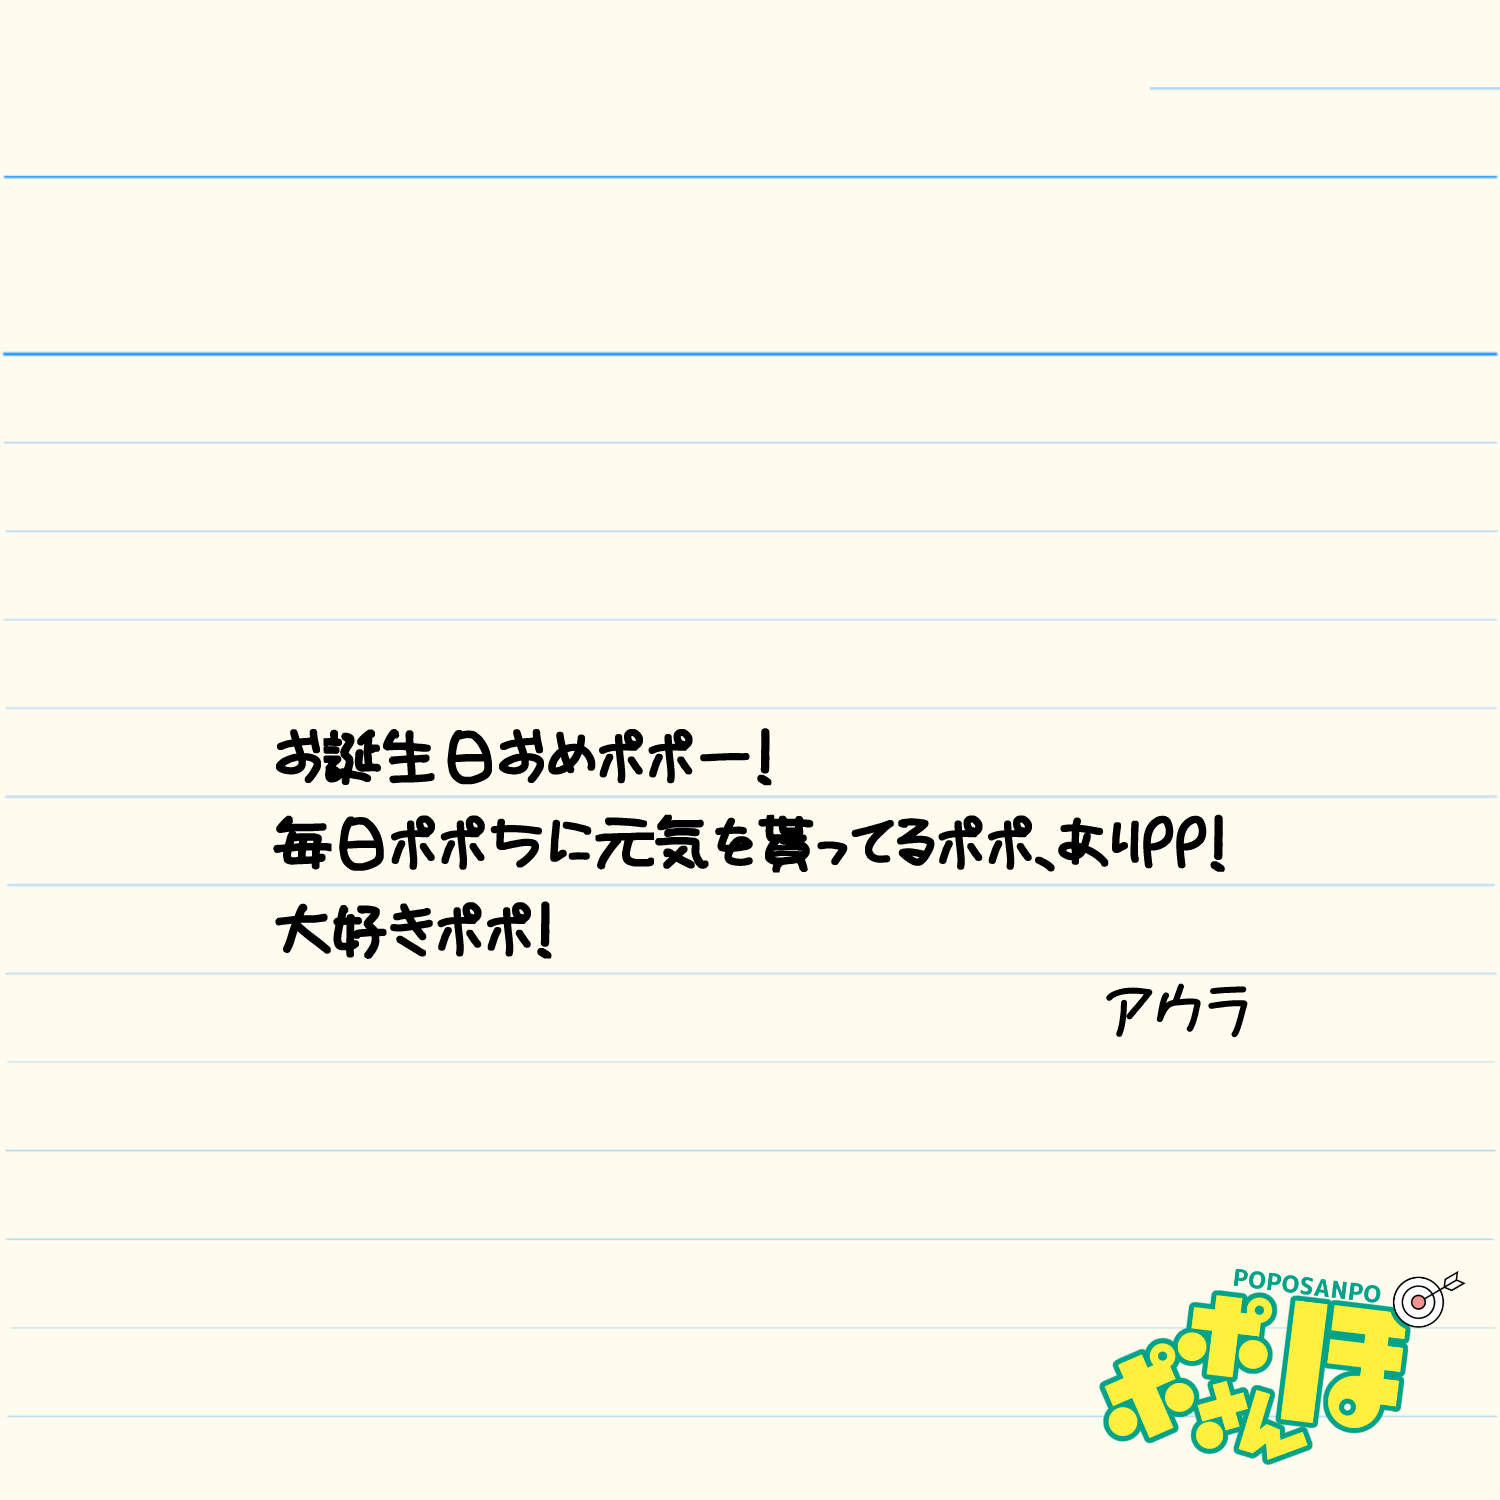 お誕生日おめポポー!
毎日ポポちに元気を貰ってるポポ、ありPP!
大好きポポ!
アウラ
POPOSANPO
ポポさんぽ